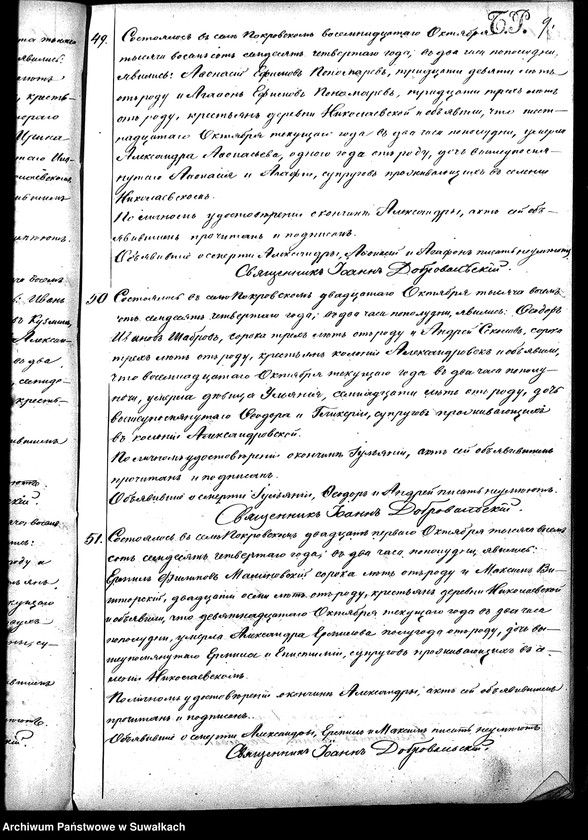 Б.Р. 9.
49. Состоялось въ селѣ Покровскомъ восемнадцатаго Октября
тысяча восемьсотъ семьдесятъ четвертаго года, въ два часа пополудни,
явились: Аѳонасій Ефимовъ Пономаревъ, тридцати девяти лѣтъ
отъ роду и Агаѳонъ Ефимовъ Пономаревъ, тридцати трехъ лѣтъ
отъ роду, крестьяне деревни Николаевской и объявили, что шест-
надцатаго Октября текущаго года въ два часа пополудни, умерла
Александра Аѳонасьева, одного года отъ роду, дочь вышеупомя-
нутаго Аѳонасія и Агафіи, супруговъ проживающихъ въ селеніи
Николаевскомъ.
По личномъ удостовѣреніи о кончинѣ Александры, актъ сей объ-
явившимъ прочитанъ и подписанъ.
Объявившіе о смерти Александры, Аѳонасій и Агаѳонъ писать неумѣютъ
Священникъ Іоаннъ Добровольскій.
50 Состоялось въ селѣ Покровскомъ двадцатаго Октября тысяча восемь-
сотъ семьдесятъ четвертаго года, въ два часа пополудни, явились: Ѳеодоръ
Ивановъ, сорока трехъ лѣтъ отъ роду и Андрей, сорока
трехъ лѣтъ отъ роду, крестьяне колоніи Александровска и объявили,
что восемнадцатаго Октября текущаго года въ два часа полу-
ночи, умерла дѣвица Ульянія, семнадцати лѣтъ отъ роду, дочь
вышеупомянутаго Ѳеодора и Гликеріи, супруговъ проживающихъ
въ колоніи Александровской.
По личному удостовѣренію о кончинѣ Іульяніи, актъ сей объявившимъ
прочитанъ и подписанъ.
Объявившіе о смерти Іульяніи, Ѳеодоръ и Андрей писать неумѣютъ.
Священникъ Іоаннъ Добровольскій.
51. Состоялось въ селѣ Покровскомъ двадцать перваго Октября тысяча восемь-
сотъ семьдесятъ четвертаго года, въ два часа пополудни, явились:
Ермилъ Филиповъ сорока лѣтъ отъ роду и Максимъ
двадцати осми лѣтъ отъ роду, крестьяне деревни Николаевской
и объявили, что девятнадцатаго Октября текущаго года въ два часа
пополудни, умерла Александра Ермилова полугода отъ роду, дочь вы-
шеупомянутаго Ермила и Епистиміи, супруговъ проживающихъ въ се-
леніи Николаевскомъ.
По личному удостовѣренію о кончинѣ Александры, актъ сей объявившимъ
прочитанъ и подписанъ.
Объявившіе о смерти Александры, Ермилъ и Максимъ писать неумѣютъ
Священникъ Іоаннъ Добровольскій.
Archiwum Państwowe w Suwałkach